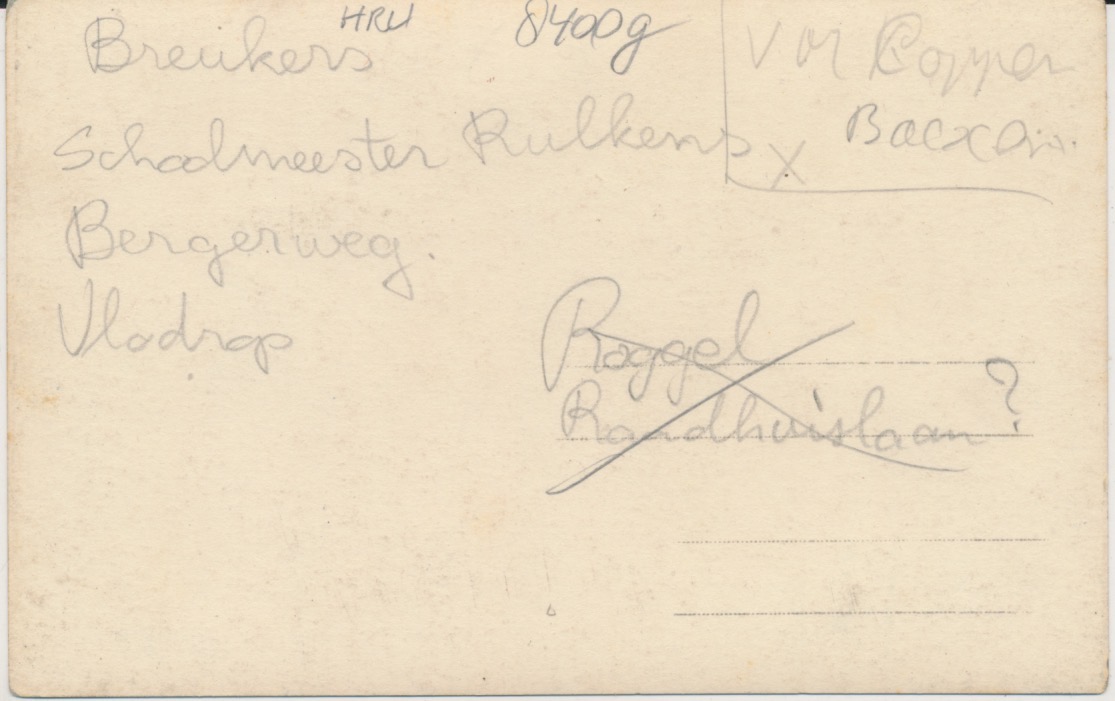 HRU 8400g
Breukers
Schoolmeester Rulkens
Bergerweg.
Vlodrop
Vor Coppen
X
Roggel
Raadhuislaan ?